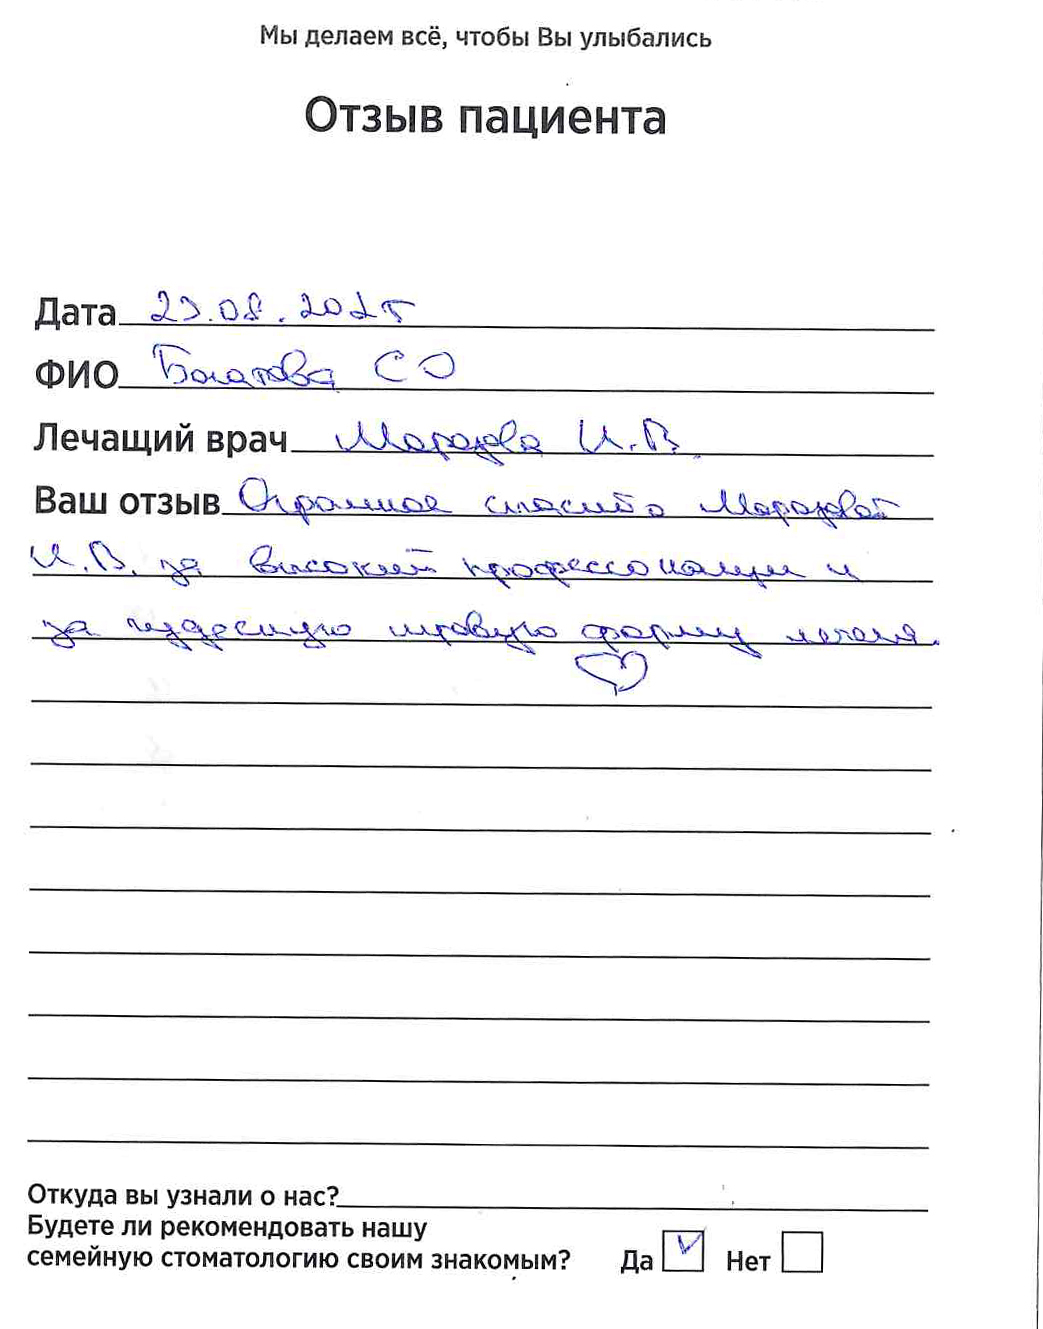 Мы делаем всё, чтобы Вы улыбались
Отзыв пациента
Дата 23.08.2025
ФИО Богатова С О
Лечащий врач Морозова И.В.
Ваш отзыв Огромное спасибо Морозовой
И.В. за высокий профессионализм и
за чудесную игровую форму лечения.
Откуда вы узнали о нас?
Будете ли рекомендовать нашу
семейную стоматологию своим знакомым? Да Нет